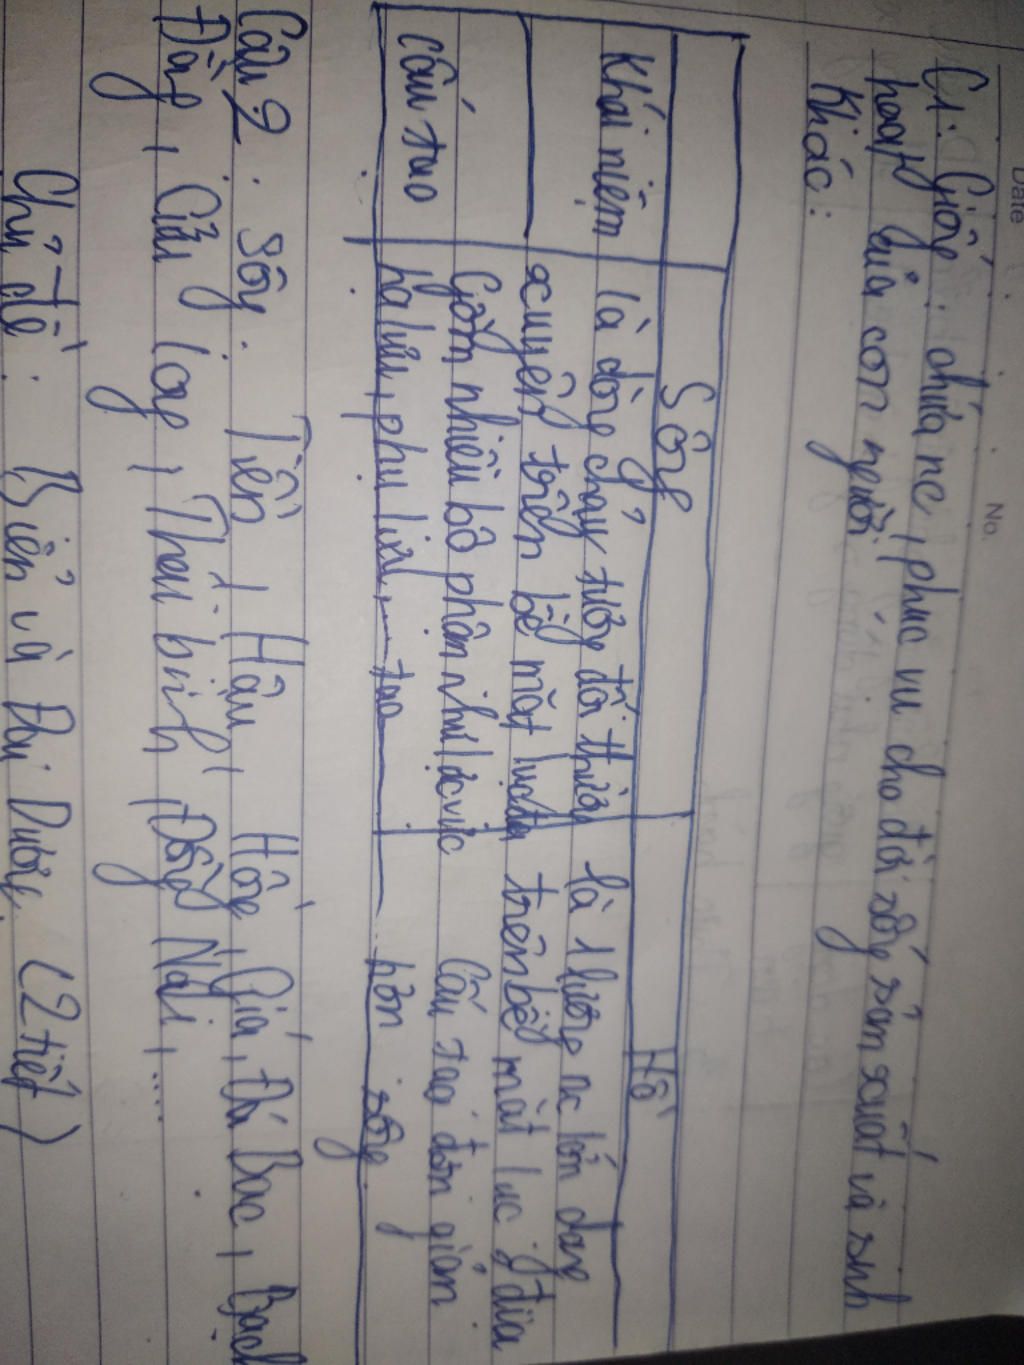 Date
No.
C1: Giống: chứa nc, phục vụ cho đời sống sản xuất và sinh
hoạt của con người
Khác:
Sông
Hồ
Khái niệm
là dòng chảy tương đối thường
xuyên trên bề mặt lục địa
là 1 lượng nc lớn đang
trên bề mặt lục địa
Cấu tạo
Gồm nhiều bộ phận như lưu vực
phụ lưu,
tạo
Cấu tạo đơn giản
hơn sông
Câu 2: Sông: Tiền, Hậu, Hồng, Giá, Đá Bạc, Bạch
Đằng, Cửu Long, Thái bình, Đồng Nai, ....
Chủ đề: Biển và Đại Dương (2 tiết)